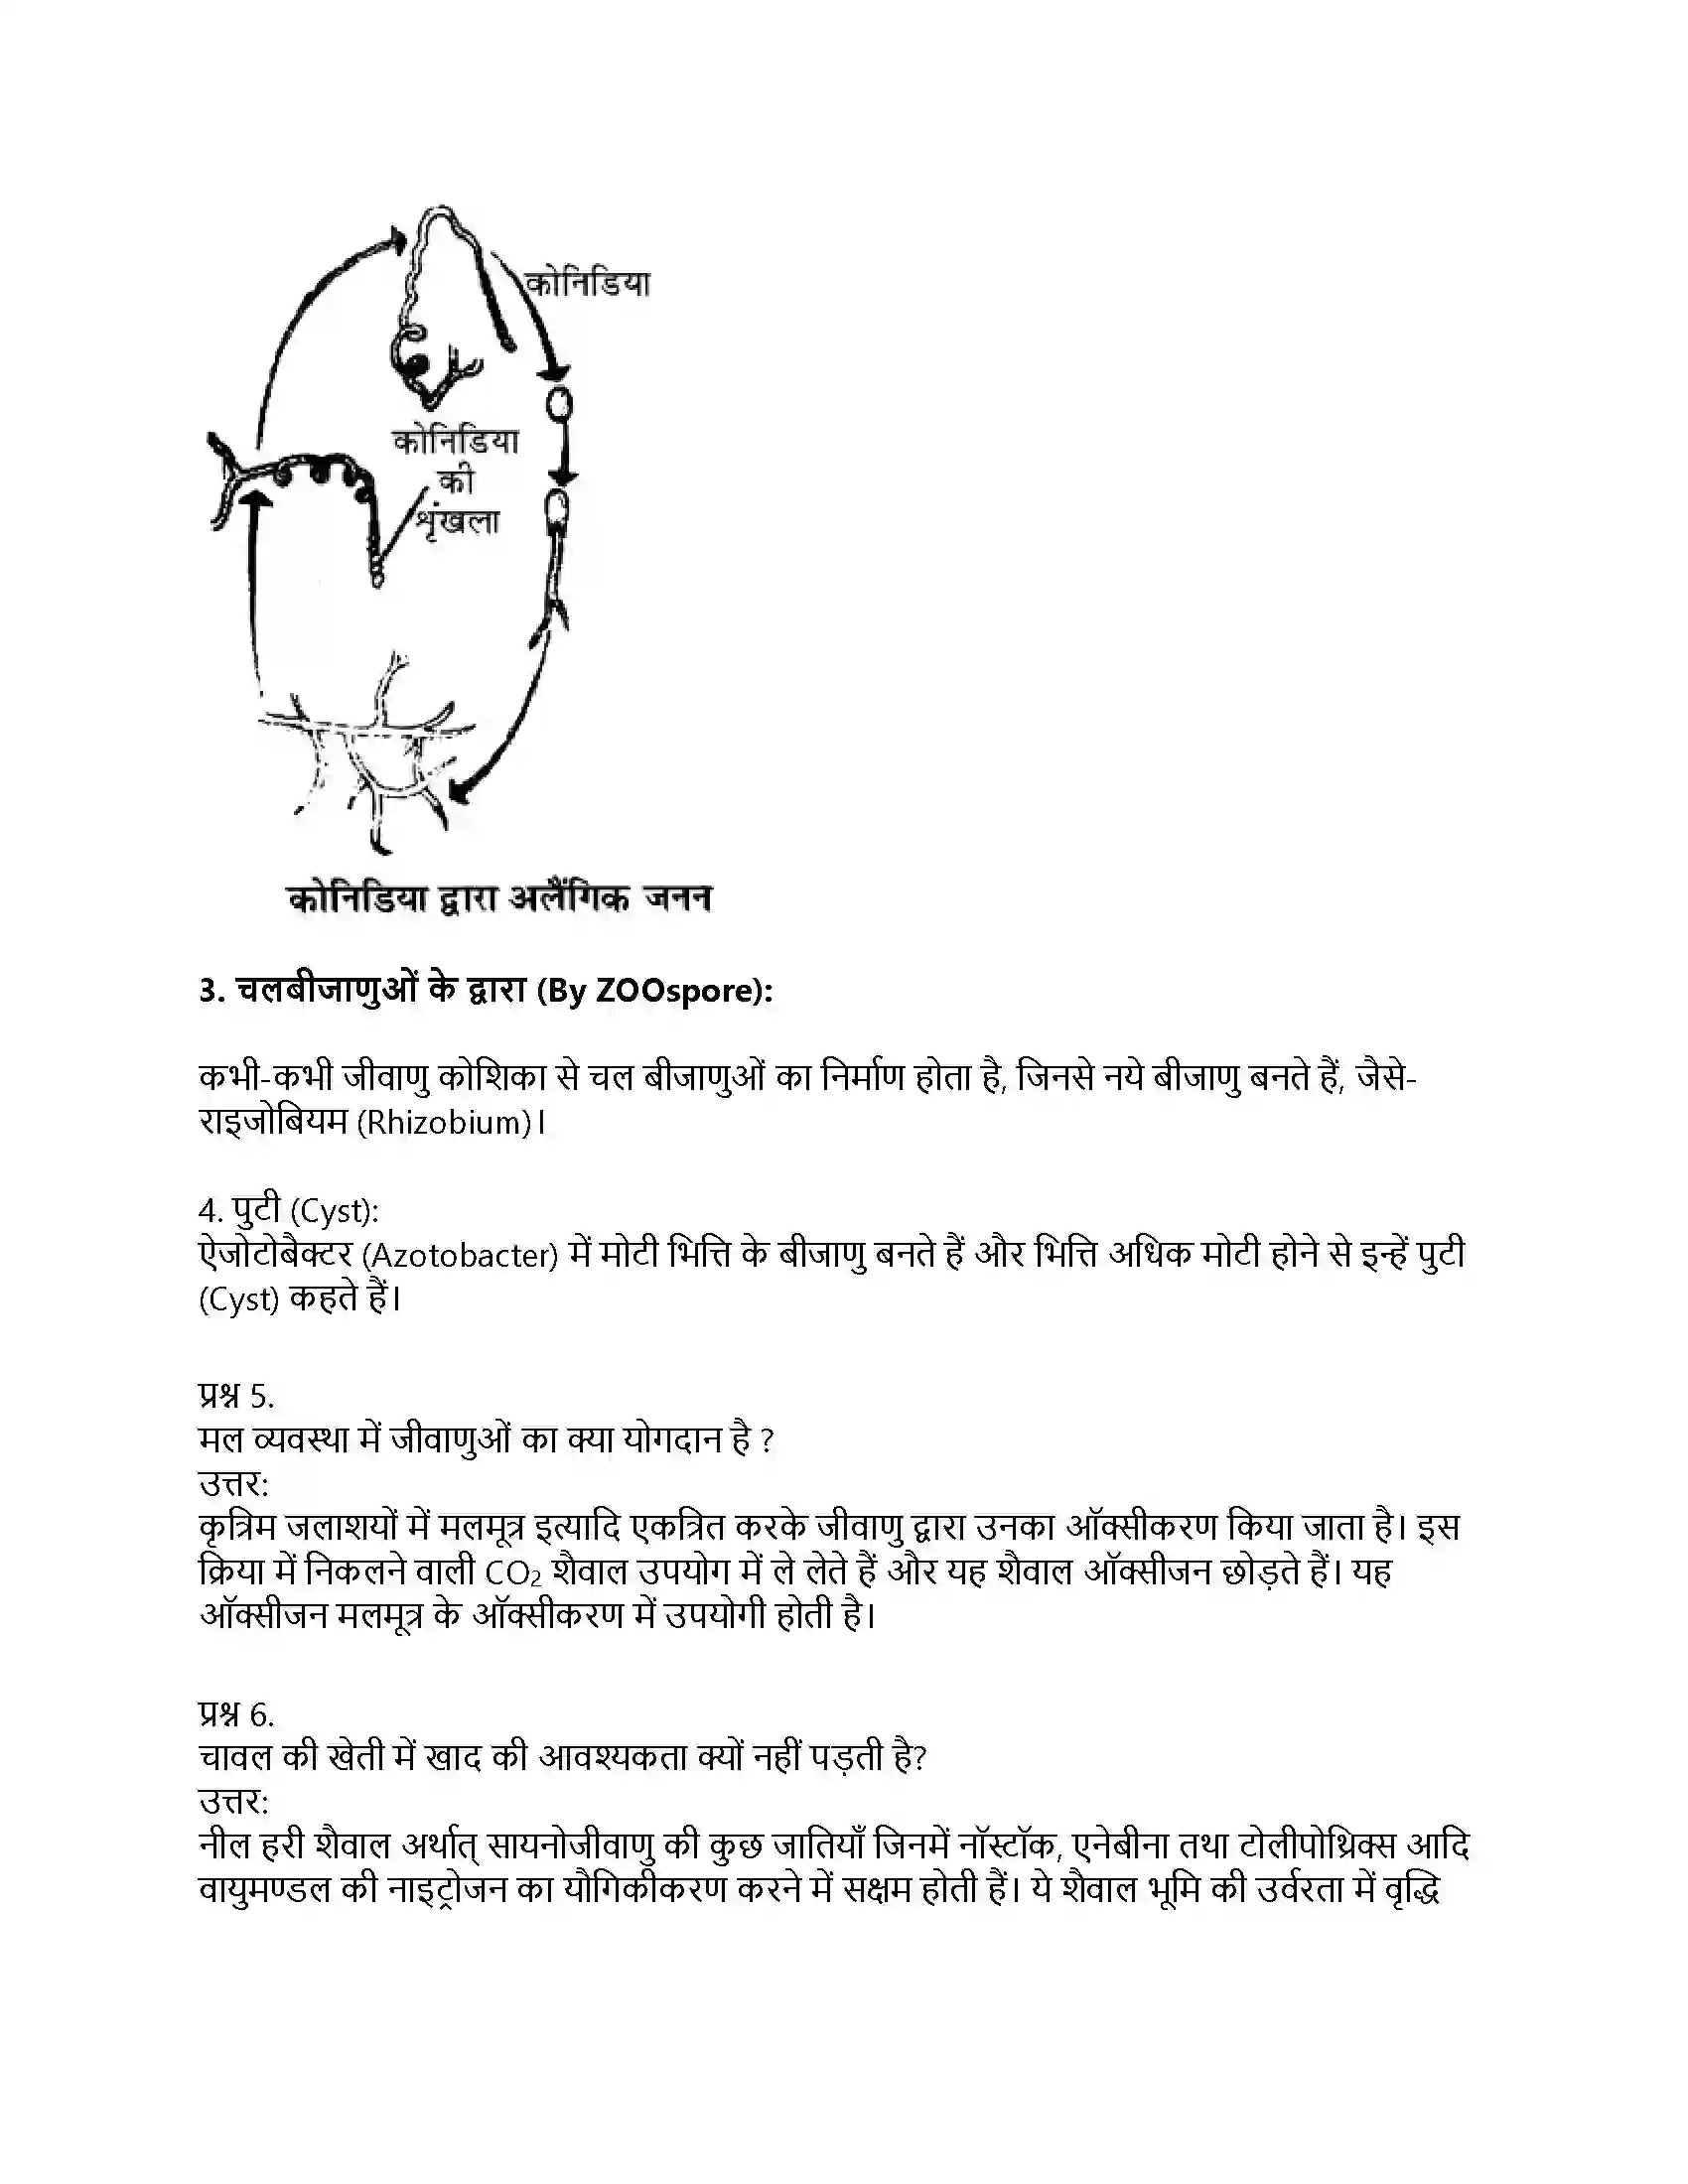 कोनिडिया
कोनिडिया
की
शृंखला
कोनिडिया द्वारा अलैंगिक जनन
3. चलबीजाणुओं के द्वारा (By ZOOspore):
कभी-कभी जीवाणु कोशिका से चल बीजाणुओं का निर्माण होता है, जिनसे नये बीजाणु बनते हैं, जैसे-
राइजोबियम (Rhizobium)।
4. पुटी (Cyst):
ऐजोटोबैक्टर (Azotobacter) में मोटी भित्ति के बीजाणु बनते हैं और भित्ति अधिक मोटी होने से इन्हें पुटी
(Cyst) कहते हैं।
प्रश्न 5.
मल व्यवस्था में जीवाणुओं का क्या योगदान है ?
उत्तर:
कृत्रिम जलाशयों में मलमूत्र इत्यादि एकत्रित करके जीवाणु द्वारा उनका ऑक्सीकरण किया जाता है। इस
क्रिया में निकलने वाली CO₂ शैवाल उपयोग में ले लेते हैं और यह शैवाल ऑक्सीजन छोड़ते हैं। यह
ऑक्सीजन मलमूत्र के ऑक्सीकरण में उपयोगी होती है।
प्रश्न 6.
चावल की खेती में खाद की आवश्यकता क्यों नहीं पड़ती है?
उत्तर:
नील हरी शैवाल अर्थात् सायनोजीवाणु की कुछ जातियाँ जिनमें नॉस्टॉक, एनेबीना तथा टोलीपोथ्रिक्स आदि
वायुमण्डल की नाइट्रोजन का यौगिकीकरण करने में सक्षम होती हैं। ये शैवाल भूमि की उर्वरता में वृद्धि